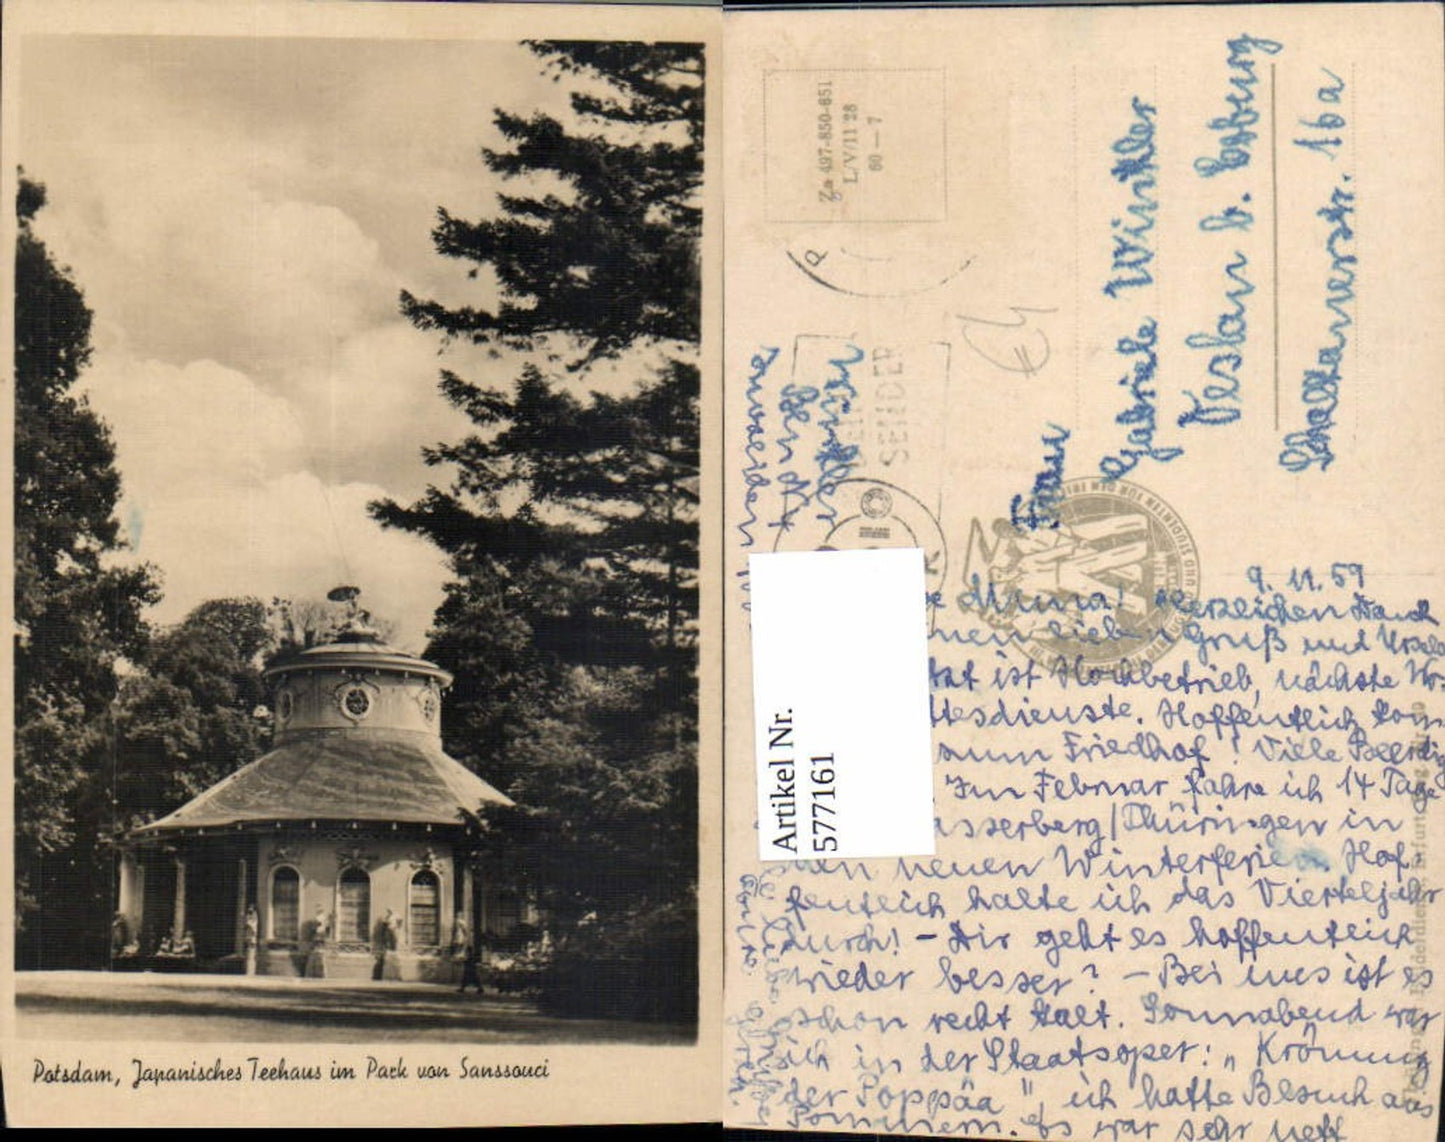 Potsdam, Japanisches Teehaus im Park von Sanssouci
Zn 497-850-651
L/V/11 28
60 — 7
SENDER
Frau
Gabriele Winkler
Veslau b. Coburg
Callenverstr. 16a
Artikel Nr.
577161
9. 11. 59
Muma! Herzlichen Dank
lieben Gruß und
ist Hochbetrieb, nächste
ttesdienste. Hoffentlich kom
zum Friedhof! Viele Beerdig
Im Februar fahre ich 14 Tage
asserberg/Thüringen in
den neuen Winterferien. Hof
fentlich halte ich das Vierteljahr
durch! - Dir geht es hoffentlich
wieder besser? - Bei uns ist es
schon recht kalt. Sonnabend war
ich in der Staatsoper: "Krönung
der Poppäa", ich hatte Besuch aus
Pommern. Es war sehr nett